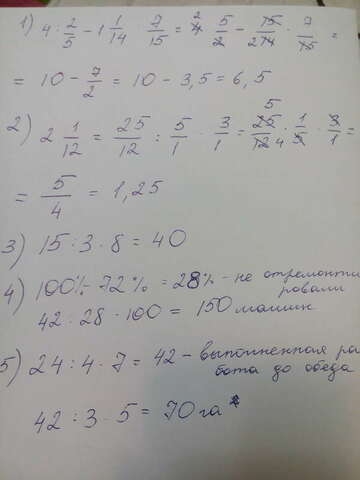 1) 4 : 2/5 - 1 1/14 · 7/15 = 4 · 5/2 - 15/14 · 7/15 =
= 10 - 7/2 = 10 - 3,5 = 6,5
2) 2 1/12 = 25/12 : 5/1 · 3/1 = 25/12 · 1/5 · 3/1 =
= 5/4 = 1,25
3) 15 : 3 · 8 = 40
4) 100% - 72% = 28% - не отремонти
ровали
42 : 28 · 100 = 150 машин
5) 24 : 4 · 7 = 42 - выполненная ра
бота до обеда
42 : 3 · 5 = 70 га